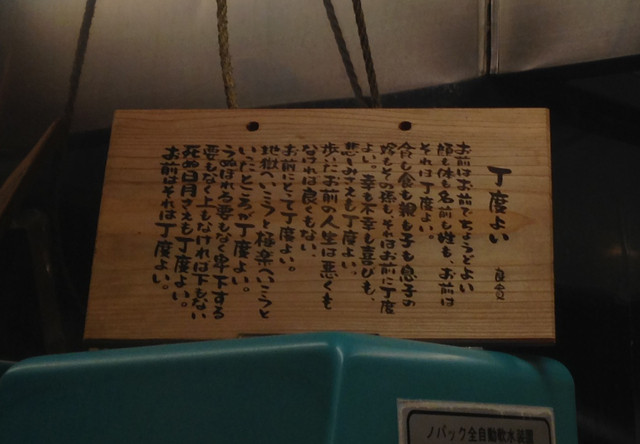 丁度よい
良寛
お前はお前でちょうどよい
顔も体も名前も姓も、お前は
それは丁度よい。
貧も富も親も子も息子の
嫁もその孫もそれはお前に丁度
よい。幸も不幸も喜びも、
悲しみさえも丁度よい。
歩いたお前の人生は悪くも
なければ良くもない
お前にとって丁度よい。
地獄へいこうと極楽へいこうと
いったところが丁度よい。
うぬぼれる要もなく卑下する
要もなく上もなければ下もない
死ぬ日月さえも丁度よい。
お前はそれは丁度よい。
ノバック全自動軟水装置